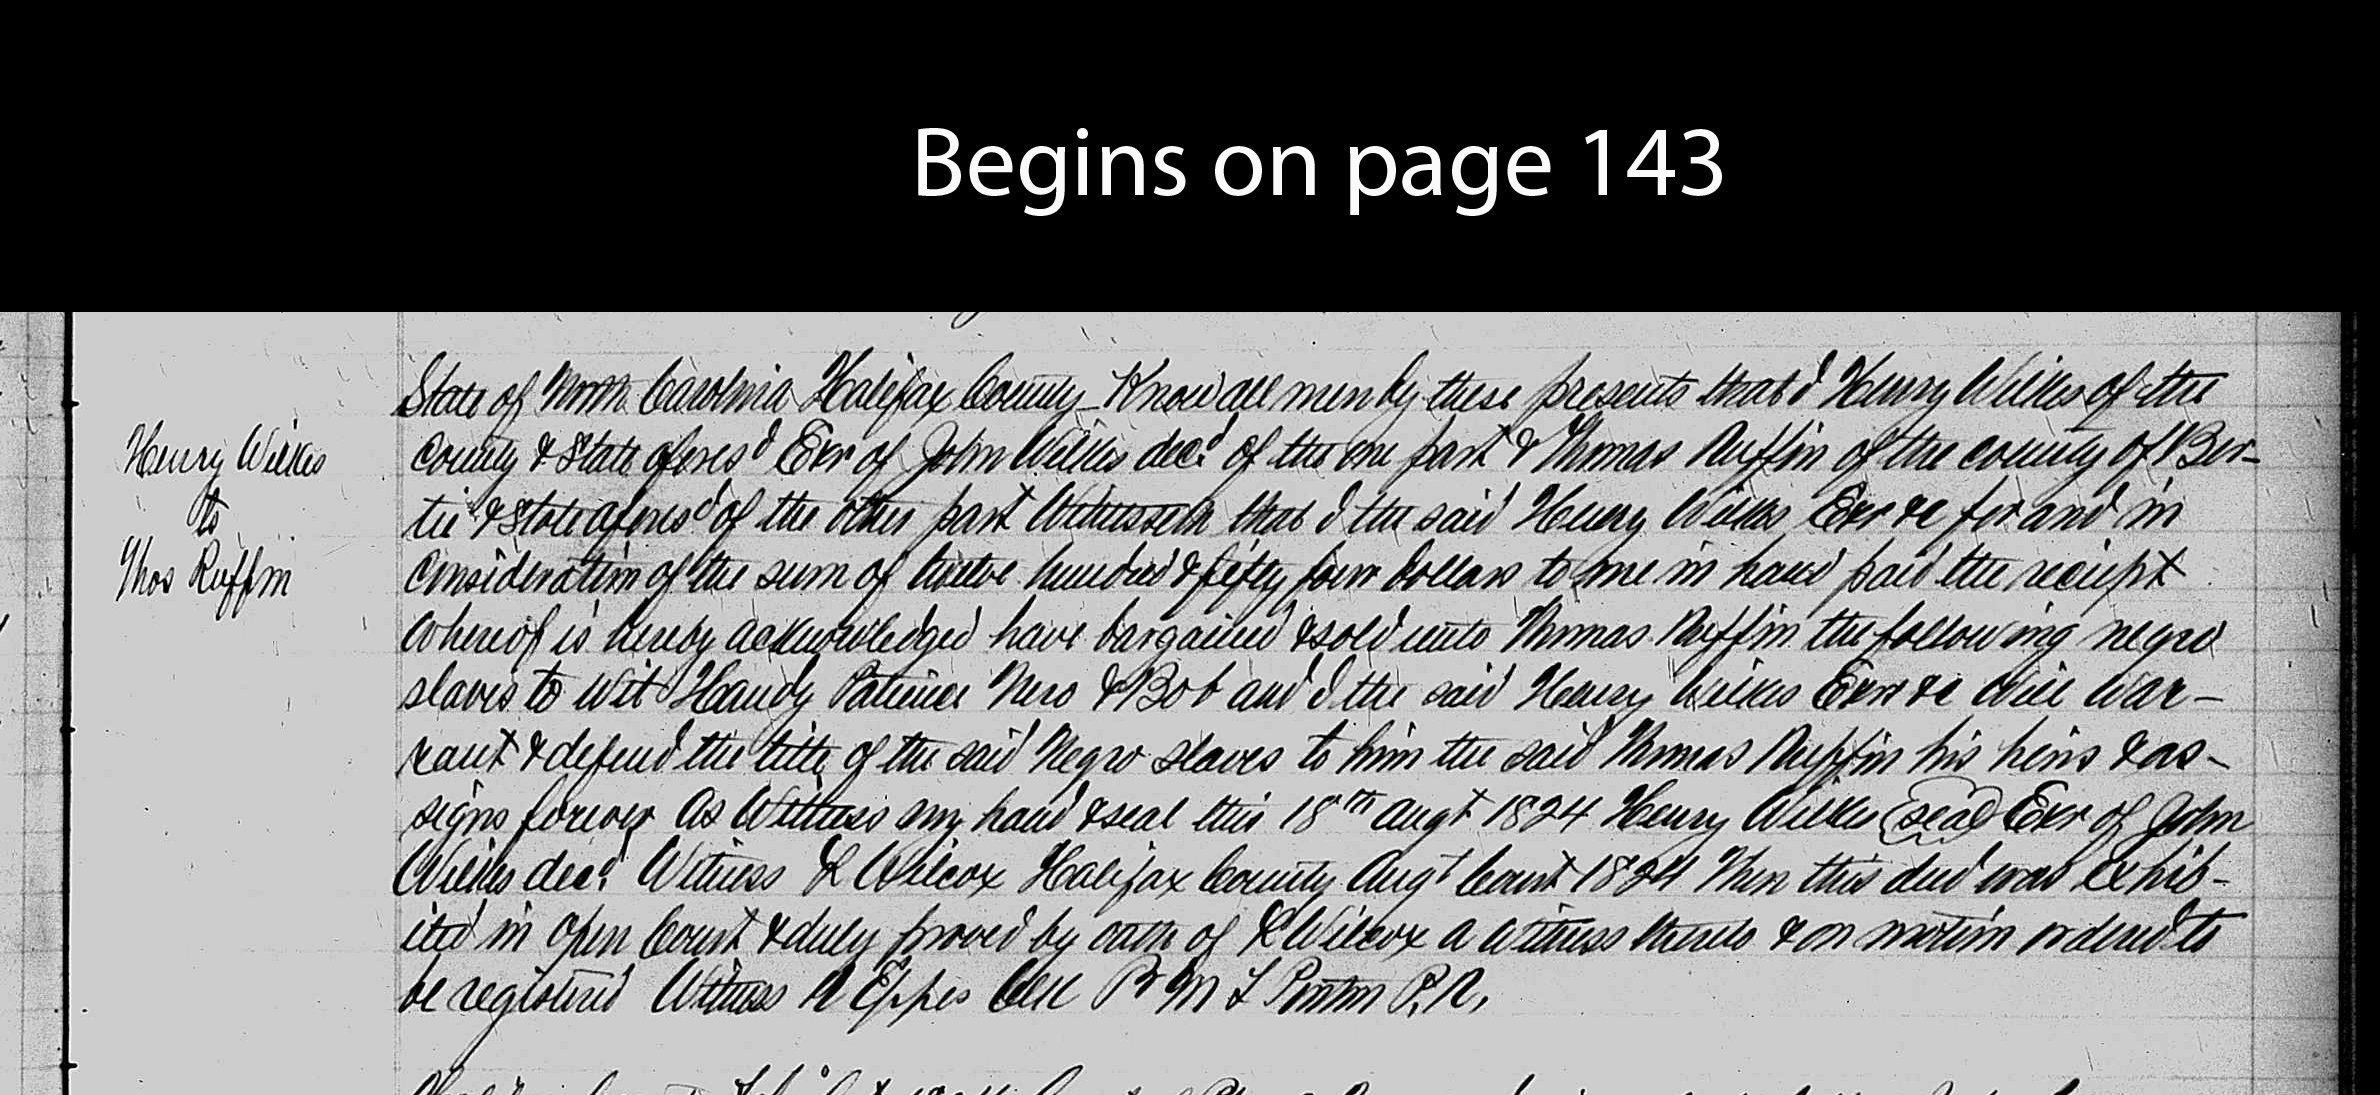 Begins on page 143
Henry Wilkes
to
Thos Ruffin
State of North Carolina Halifax County Know all men by these presents that I Henry Wilkes of the
County & State afores'd Exr of John Wilkes dec'd of the one part & Thomas Ruffin of the county of Ber-
tie & State afores'd of the other part Witnesseth that I the said Henry Wilkes Exr &c for and in
Consideration of the sum of twelve hundred & fifty four dollars to me in hand paid the reciept
whereof is hereby acknowledged have bargained & sold unto Thomas Ruffin the following negro
slaves to wit Handy Patience Nero & Bob and I the said Henry Wilkes Exr &c will war-
rant & defend the title of the said Negro slaves to him the said Thomas Ruffin his heirs & as-
signs forever As Witness my hand & seal this 18th Augt 1824 Henry Wilkes (seal) Exr of John
Wilkes dec'd Witness L Wilcox Halifax County Augt Court 1824 Then this deed was exhib-
ited in open Court & duly proved by oath of L Wilcox a witness thereto & on motion ordered to
be registered Witness R Eppes Clk Pr M L Ponton P.R.